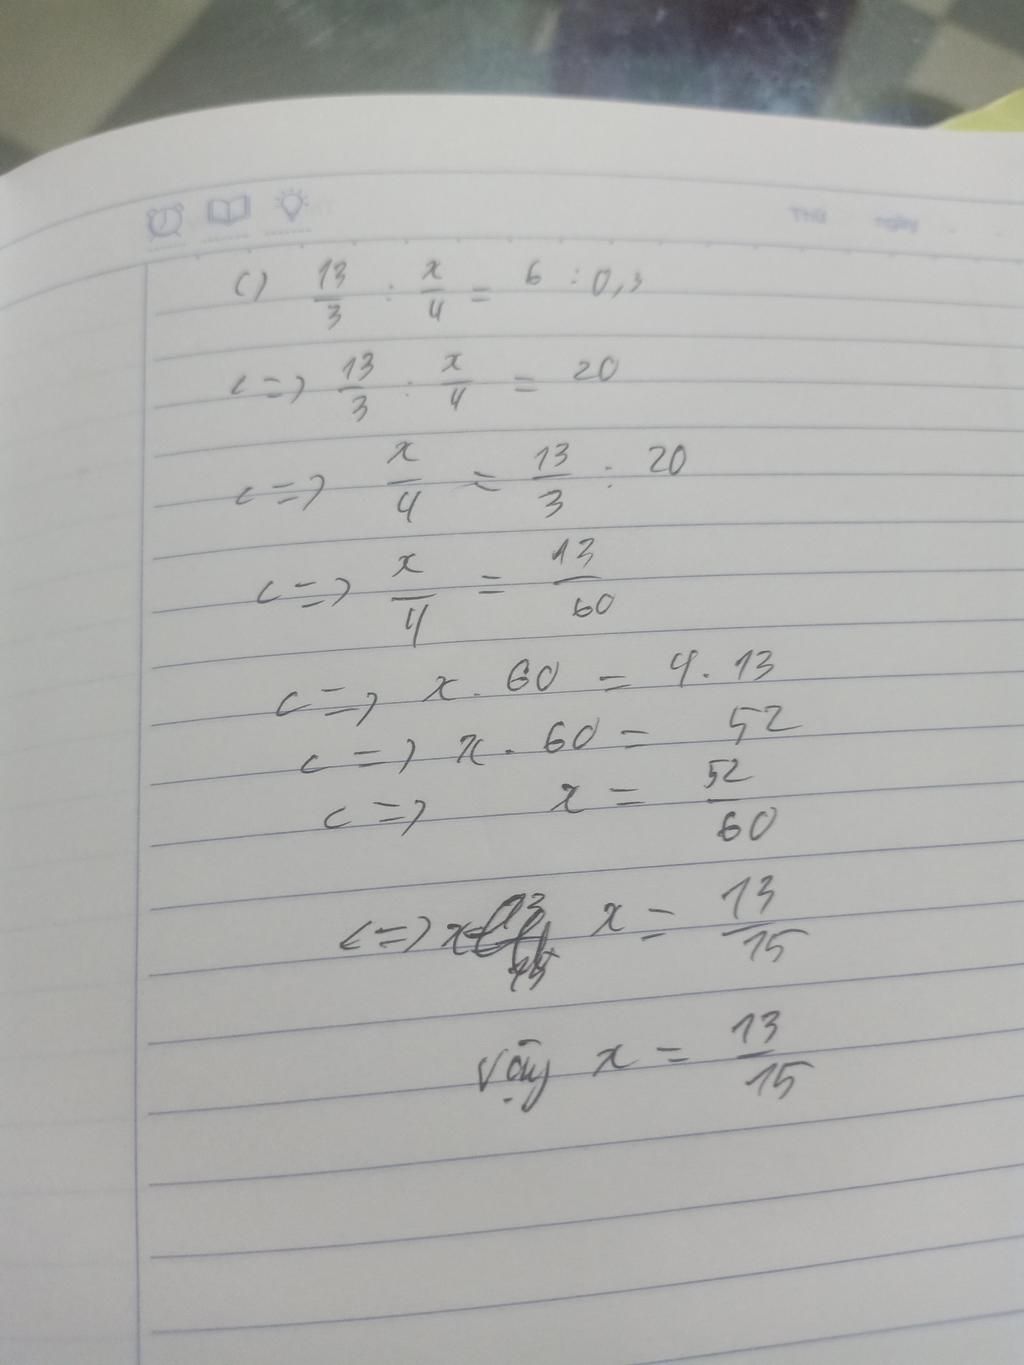 Thứ ngày
c) 13/3 : x/4 = 6 : 0,3
<=> 13/3 : x/4 = 20
<=> x/4 = 13/3 : 20
<=> x/4 = 13/60
<=> x . 60 = 4 . 13
<=> x . 60 = 52
<=> x = 52/60
<=> x = 13/15
Vậy x = 13/15